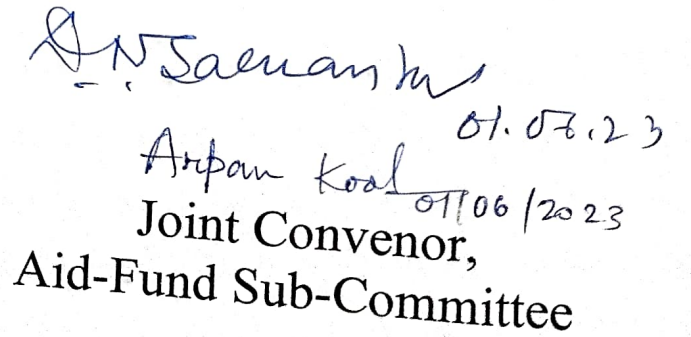 01.06.23
Arpan Koal
01/06/2023
Joint Convenor,
Aid-Fund Sub-Committee